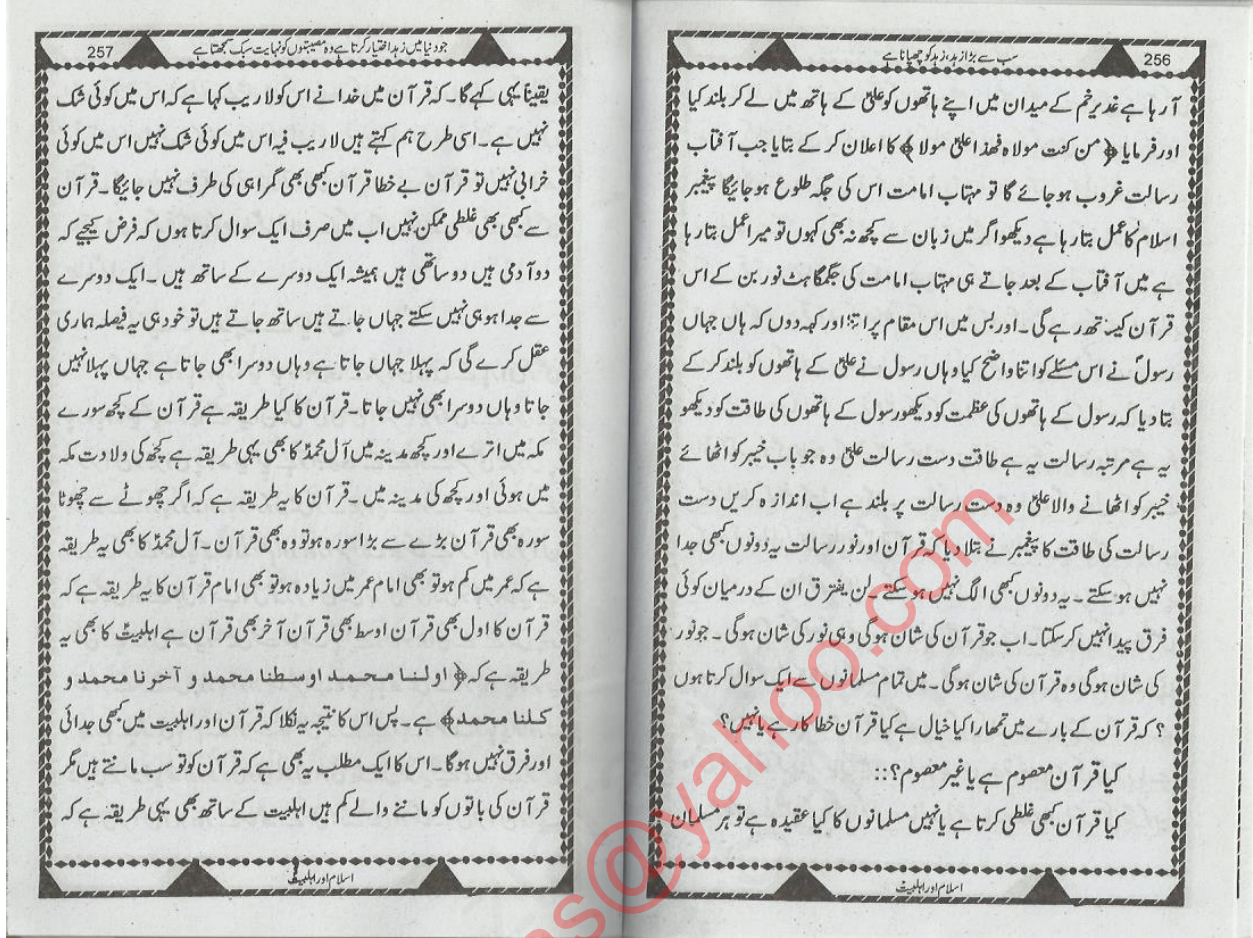 256
سب سے بڑا زہد، زہد کو چھپانا ہے
آرہا ہے غدیر خم کے میدان میں اپنے ہاتھوں کو علیؑ کے ہاتھ میں لے کر بلند کیا
اور فرمایا ﴿من کنت مولاہ فھذا علیؑ مولا﴾ کا اعلان کر کے بتایا جب آفتاب
رسالت غروب ہو جائے گا تو مہتاب امامت اس کی جگہ طلوع ہو جائیگا پیغمبر
اسلام ؐکا عمل بتا رہا ہے دیکھو اگر میں زبان سے کچھ نہ بھی کہوں تو میرا عمل بتا رہا
ہے میں آفتاب کے بعد جاتے ہی مہتاب امامت کی جگمگاہٹ نور بن کے اس
قرآن کیساتھ رہے گی۔ اور بس میں اس مقام پر اتنا اور کہہ دوں کہ ہاں جہاں
رسولؐ نے اس مسئلے کو اتنا واضح کیا وہاں رسول نے علیؑ کے ہاتھوں کو بلند کر کے
بتا دیا کہ رسول کے ہاتھوں کی عظمت کو دیکھو رسول کے ہاتھوں کی طاقت کو دیکھو
یہ ہے مرتبہ رسالت یہ ہے طاقت دست رسالت علیؑ وہ جو باب خیبر کو اٹھائے
خیبر کو اٹھانے والا علیؑ وہ دست رسالت پر بلند ہے اب اندازہ کریں دست
رسالت کی طاقت کا پیغمبر نے بتلا دیا کہ قرآن اور نور رسالت یہ دونوں کبھی جدا
نہیں ہو سکتے۔ یہ دونوں کبھی الگ نہیں ہو سکتے۔ لن یفترق ان کے درمیان کوئی
فرق پیدا نہیں کر سکتا۔ اب جو قرآن کی شان ہوگی وہی نور کی شان ہوگی۔ جو نور
کی شان ہوگی وہ قرآن کی شان ہوگی۔ میں تمام مسلمانوں سے ایک سوال کرتا ہوں
؟ کہ قرآن کے بارے میں تمھارا کیا خیال ہے کیا قرآن خطا کار ہے یا نہیں؟
کیا قرآن معصوم ہے یا غیر معصوم؟::
کیا قرآن کبھی غلطی کرتا ہے یا نہیں مسلمانوں کا کیا عقیدہ ہے تو ہر مسلمان
اسلام اور اہلبیتؑ
257
جو دنیا میں زہد اختیار کرتا ہے وہ مصیبتوں کو نہایت سبک سمجھتا ہے
یقیناً یہی کہے گا۔ کہ قرآن میں خدا نے اس کو لاریب کہا ہے کہ اس میں کوئی شک
نہیں ہے۔ اسی طرح ہم کہتے ہیں لا ریب فیہ اس میں کوئی شک نہیں اس میں کوئی
خرابی نہیں تو قرآن بے خطا قرآن کبھی بھی گمراہی کی طرف نہیں جائیگا۔ قرآن
سے کبھی بھی غلطی ممکن نہیں اب میں صرف ایک سوال کرتا ہوں کہ فرض کیجیے کہ
دو آدمی ہیں دو ساتھی ہیں ہمیشہ ایک دوسرے کے ساتھ ہیں۔ ایک دوسرے
سے جدا ہو ہی نہیں سکتے جہاں جاتے ہیں ساتھ جاتے ہیں تو خود ہی یہ فیصلہ ہماری
عقل کرے گی کہ پہلا جہاں جاتا ہے وہاں دوسرا بھی جاتا ہے جہاں پہلا نہیں
جاتا وہاں دوسرا بھی نہیں جاتا۔ قرآن کا کیا طریقہ ہے قرآن کے کچھ سورے
مکہ میں اترے اور کچھ مدینہ میں آل محمدؐ کا بھی یہی طریقہ ہے کچھ کی ولادت مکہ
میں ہوئی اور کچھ کی مدینہ میں۔ قرآن کا یہ طریقہ ہے کہ اگر چھوٹے سے چھوٹا
سورہ بھی قرآن بڑے سے بڑا سورہ ہو تو وہ بھی قرآن۔ آل محمدؐ کا بھی یہ طریقہ
ہے کہ عمر میں کم ہو تو بھی امام عمر میں زیادہ ہو تو بھی امام قرآن کا یہ طریقہ ہے کہ
قرآن کا اول بھی قرآن اوسط بھی قرآن آخر بھی قرآن ہے اہلبیتؑ کا بھی یہ
طریقہ ہے کہ ﴿اولنا محمد اوسطنا محمد و آخونا محمد و
کلنا محمد﴾ ہے۔ پس اس کا نتیجہ یہ نکلا کہ قرآن اور اہلبیت میں کبھی جدائی
اور فرق نہیں ہوگا۔ اس کا ایک مطلب یہ بھی ہے کہ قرآن کو تو سب مانتے ہیں مگر
قرآن کی باتوں کو ماننے والے کم ہیں اہلبیت کے ساتھ بھی یہی طریقہ ہے کہ
اسلام اور اہلبیتؑ
as@yahoo.com